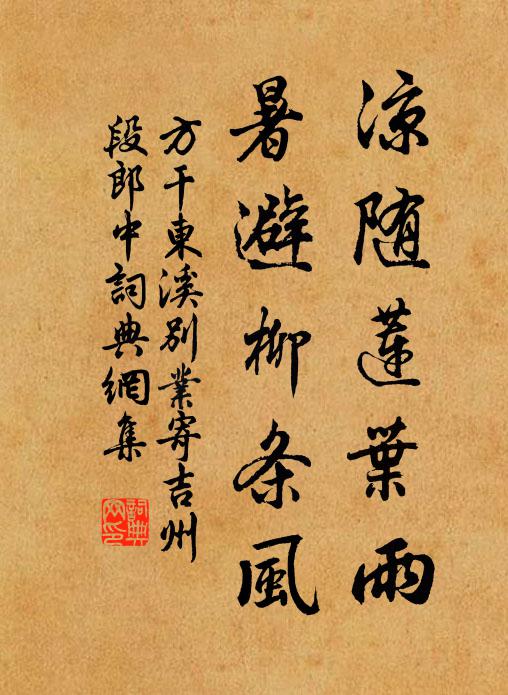 凉随蓮葉雨
暑避柳条風
方干東溪别業寄吉州
段郎中詞典網集
詞典
网印